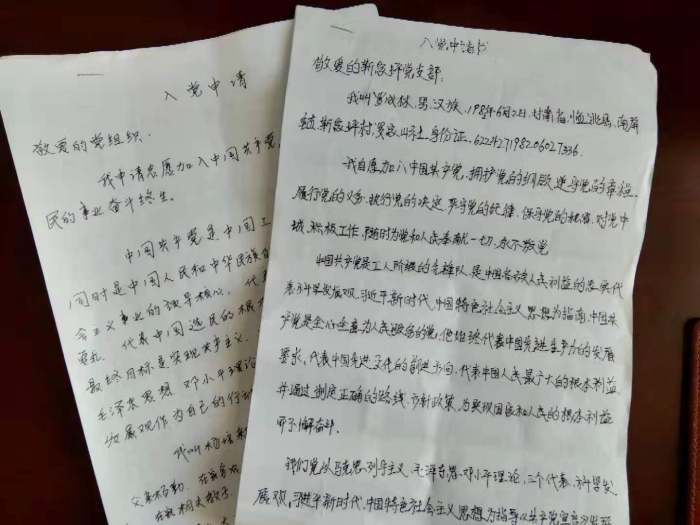 入党申请
敬爱的党组织.
我申请志愿加入中国共产党,
民的事业奋斗终生。
中国共产党是中国工
同时是中国人民和中华民族的
会主义事业的领导核心. 代表
要求. 代表中国 的根
最终目标是实现共产主义.
毛泽东思想. 邓小平理论
发展观作为自己的行动
我叫杨
入党申请书
敬爱的新总坪党支部:
我叫 成林, 男, 汉族, 甘肃省, 临洮县, 南屏
新总坪村, 社, 身份证.
我自愿加入中国共产党, 拥护党的纲领, 遵守党的章程.
履行党的义务, 执行党的决定, 严守党的纪律, 保守党的秘密, 对党忠
诚, 积极工作, 随时为党和人民奉献一切, 永不叛党
中国共产党是工人阶级的先锋队, 是中国各族人民利益的忠实代
表, 科学发展观, 习近平新时代, 中国特色社会主义思想为指南, 中国共
产党是全心全意为人民服务的党, 他始终代表中国先进生产力的发展
要求, 代表中国先进文化的前进方向, 代表中国人民最广大的根本利益
并通过制定正确的路线, 方针政策, 为实现国家和人民的根本利益
而不懈奋斗.
我们党以马克思. 列宁主义, 毛泽东思 邓小平理论, 三个代表, 科学发
展观, 习近平新时代, 中国特色社会主义思想为指导